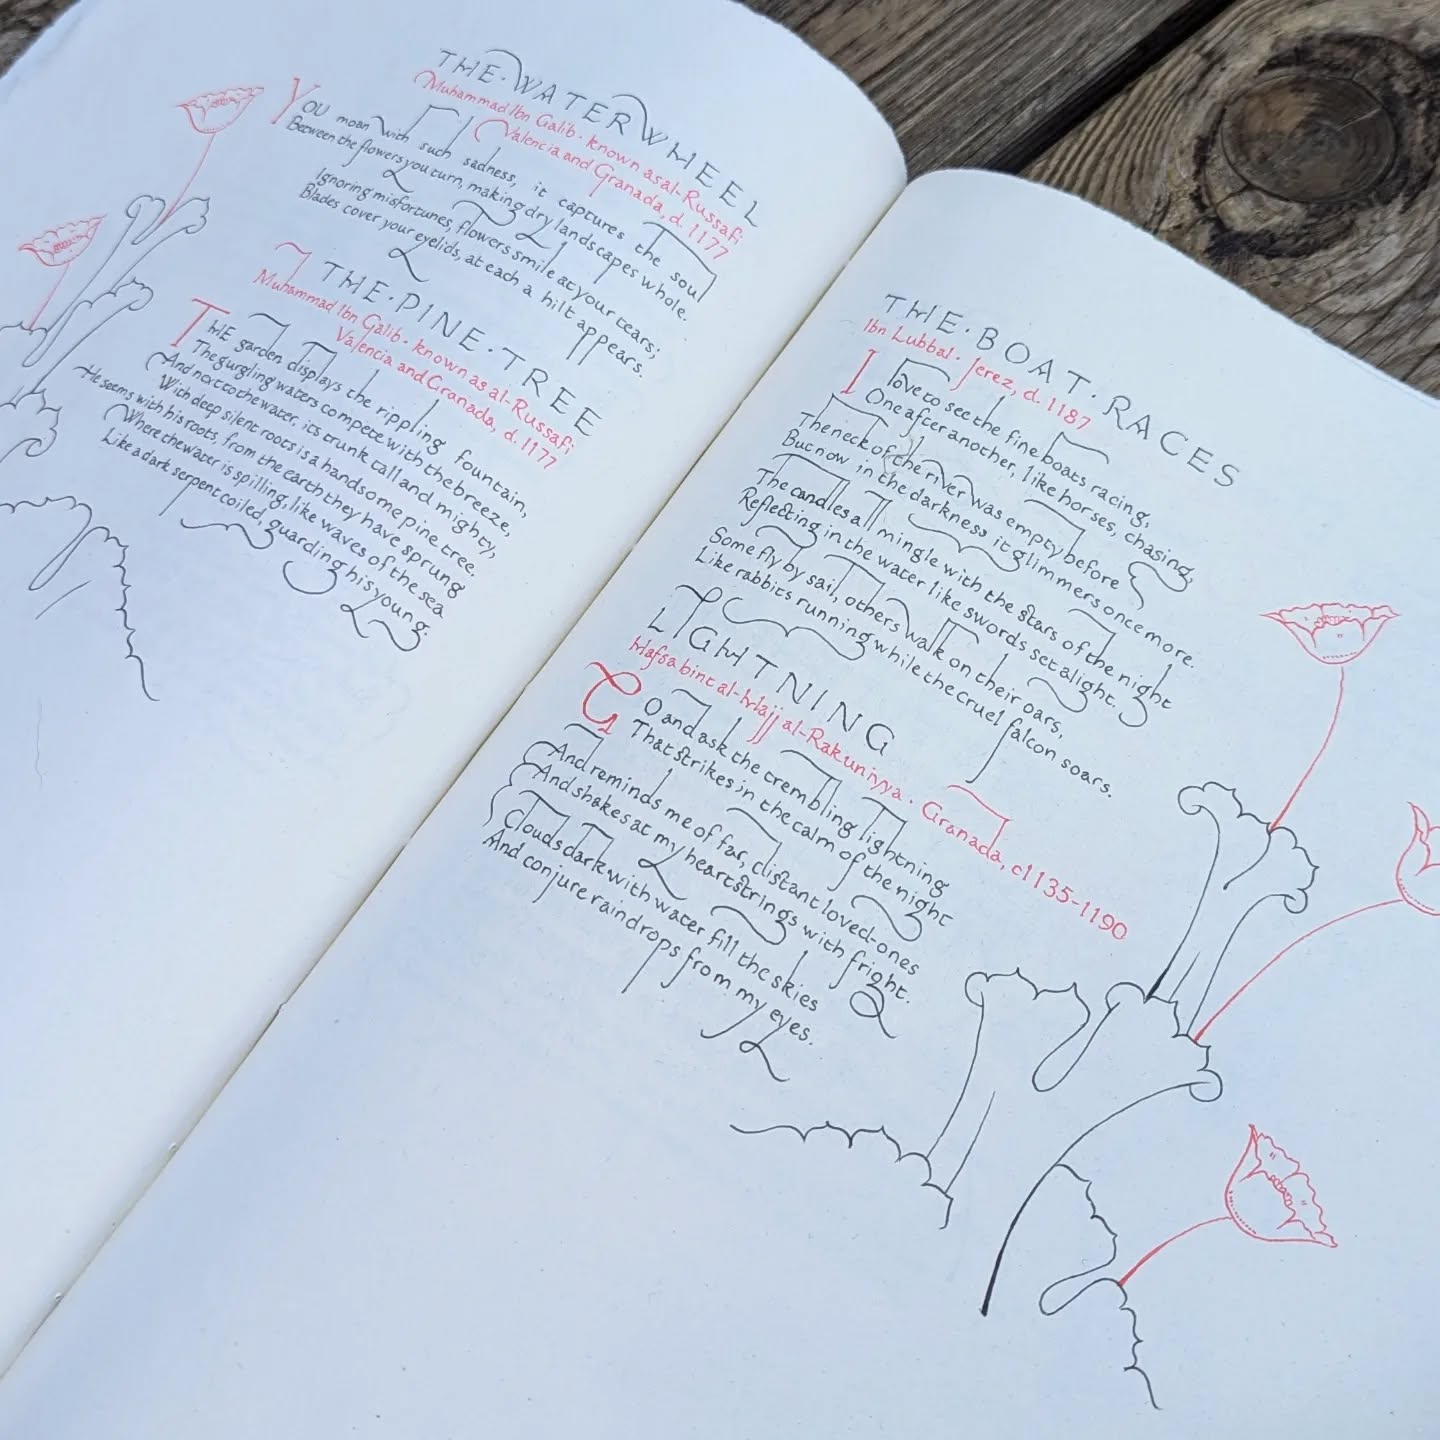 THE·WATERWHEEL
Muhammad Ibn Galib · known as al-Russafi
Valencia and Granada, d. 1177
YOU moan with such sadness, it captures the soul
Between the flowers you turn, making dry landscapes whole.
Ignoring misfortunes, flowers smile at your tears;
Blades cover your eyelids, at each a hilt appears.
THE·PINE·TREE
Muhammad Ibn Galib · known as al-Russafi
Valencia and Granada, d. 1177
THE garden displays the rippling fountain,
The gurgling waters compete with the breeze,
And next to the water, its trunk tall and mighty,
With deep silent roots is a handsome pine tree.
He seems with his roots, from the earth they have sprung
Where the water is spilling, like waves of the sea
Like a dark serpent coiled, guarding his young.
THE·BOAT·RACES
Ibn Lubbal · Jerez, d. 1187
I love to see the fine boats racing,
One after another, like horses, chasing,
The neck of the river was empty before
But now in the darkness it glimmers once more.
The candles all mingle with the stars of the night
Reflecting in the water like swords set alight.
Some fly by sail, others walk on their oars,
Like rabbits running while the cruel falcon soars.
LIGHTNING
Hafsa bint al-Hajj al-Rakuniyya · Granada, c1135-1190
GO and ask the trembling lightning
That strikes in the calm of the night
And reminds me of far, distant loved-ones
And shakes at my heartstrings with fright.
Clouds dark with water fill the skies
And conjure raindrops from my eyes.